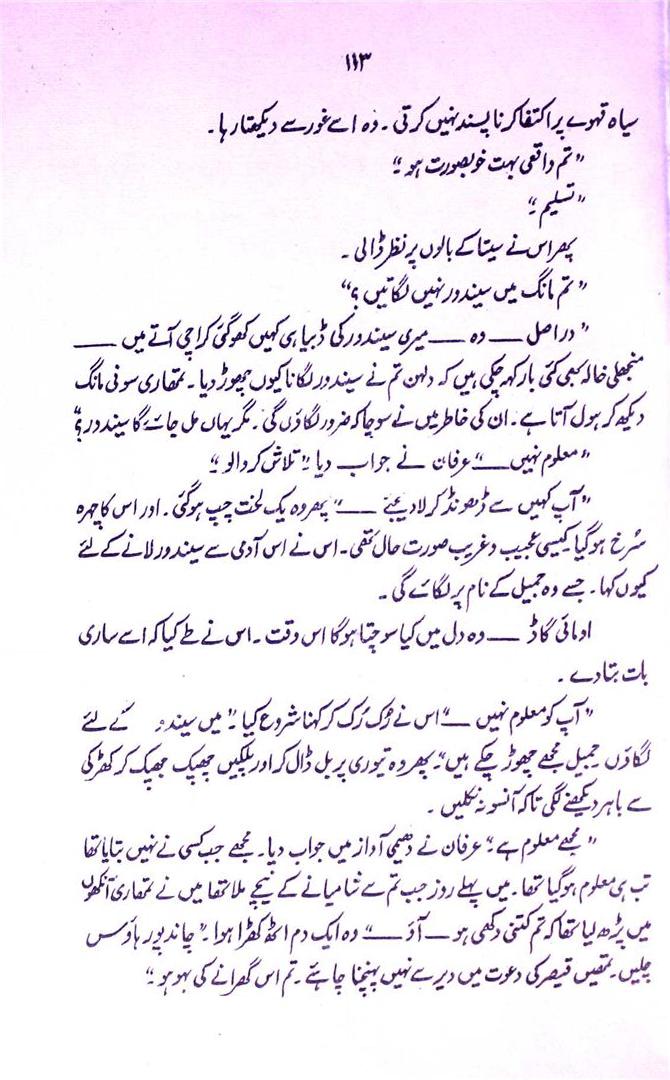 ۱۱۳
سیاہ قہوے پر اکتفا کرنا پسند نہیں کرتی ۔ وہ اسے غور سے دیکھتا رہا ۔
” تم واقعی بہت خوبصورت ہو ۔“
” تسلیم ۔“
پھر اس نے سیتا کے بالوں پر نظر ڈالی ۔
” تم مانگ میں سیندور نہیں لگاتیں ؟“
” دراصل ـــــ وہ ـــــ میری سیندور کی ڈبیا ہی کہیں کھو گئی کراچی آتے میں ـــــ
منجھلی خالہ بھی کئی بار کہہ چکی ہیں کہ دلہن تم نے سیندور لگانا کیوں چھوڑ دیا ۔ تمھاری سونی مانگ
دیکھ کر ہول آتا ہے ۔ ان کی خاطر میں نے سوچا کہ ضرور لگاؤں گی ۔ مگر یہاں مل جائے گا سیندور ؟“
” معلوم نہیں ـــــ“ عرفان نے جواب دیا ” تلاش کر والو ۔“
” آپ کہیں سے ڈھونڈ کر لا دیجئے ـــــ“ پھر وہ یک لخت چپ ہو گئی ۔ اور اس کا چہرہ
سُرخ ہو گیا کیسی عجیب و غریب صورت حال تھی ۔ اس نے اس آدمی سے سیندور لانے کے لئے
کیوں کہا ۔ جسے وہ جمیل کے نام پر لگائے گی ۔
اومائی گاڈ ـــــ وہ دل میں کیا سوچتا ہو گا اس وقت ۔ اس نے طے کیا کہ اسے ساری
بات بتا دے ۔
” آپ کو معلوم نہیں ـــــ“ اس نے رُک رُک کر کہنا شروع کیا ۔” میں سیندور کے لئے
لگاؤں جمیل مجھے چھوڑ چکے ہیں“ ۔ پھر وہ تیوری پر بل ڈال کر اور پلکیں جھپک جھپک کر کھڑکی
سے باہر دیکھنے لگی تاکہ آنسو نہ نکلیں ۔
” مجھے معلوم ہے ۔“ عرفان نے دھیمی آواز میں جواب دیا ۔ مجھے جب کسی نے نہیں بتایا تھا
تب ہی معلوم ہو گیا تھا ۔ میں پہلے روز جب تم سے شامیانے کے نیچے ملا تھا میں نے تمھاری آنکھوں
میں پڑھ لیا تھا کہ تم کتنی دکھی ہو ـــــ آؤ ـــــ“ وہ ایک دم اٹھ کھڑا ہوا ۔” چاند پور ہاؤس
چلیں ۔ تمھیں قیصر کی دعوت میں دیر سے نہیں پہنچنا چاہئے ۔ تم اس گھرانے کی بہو ہو ۔“